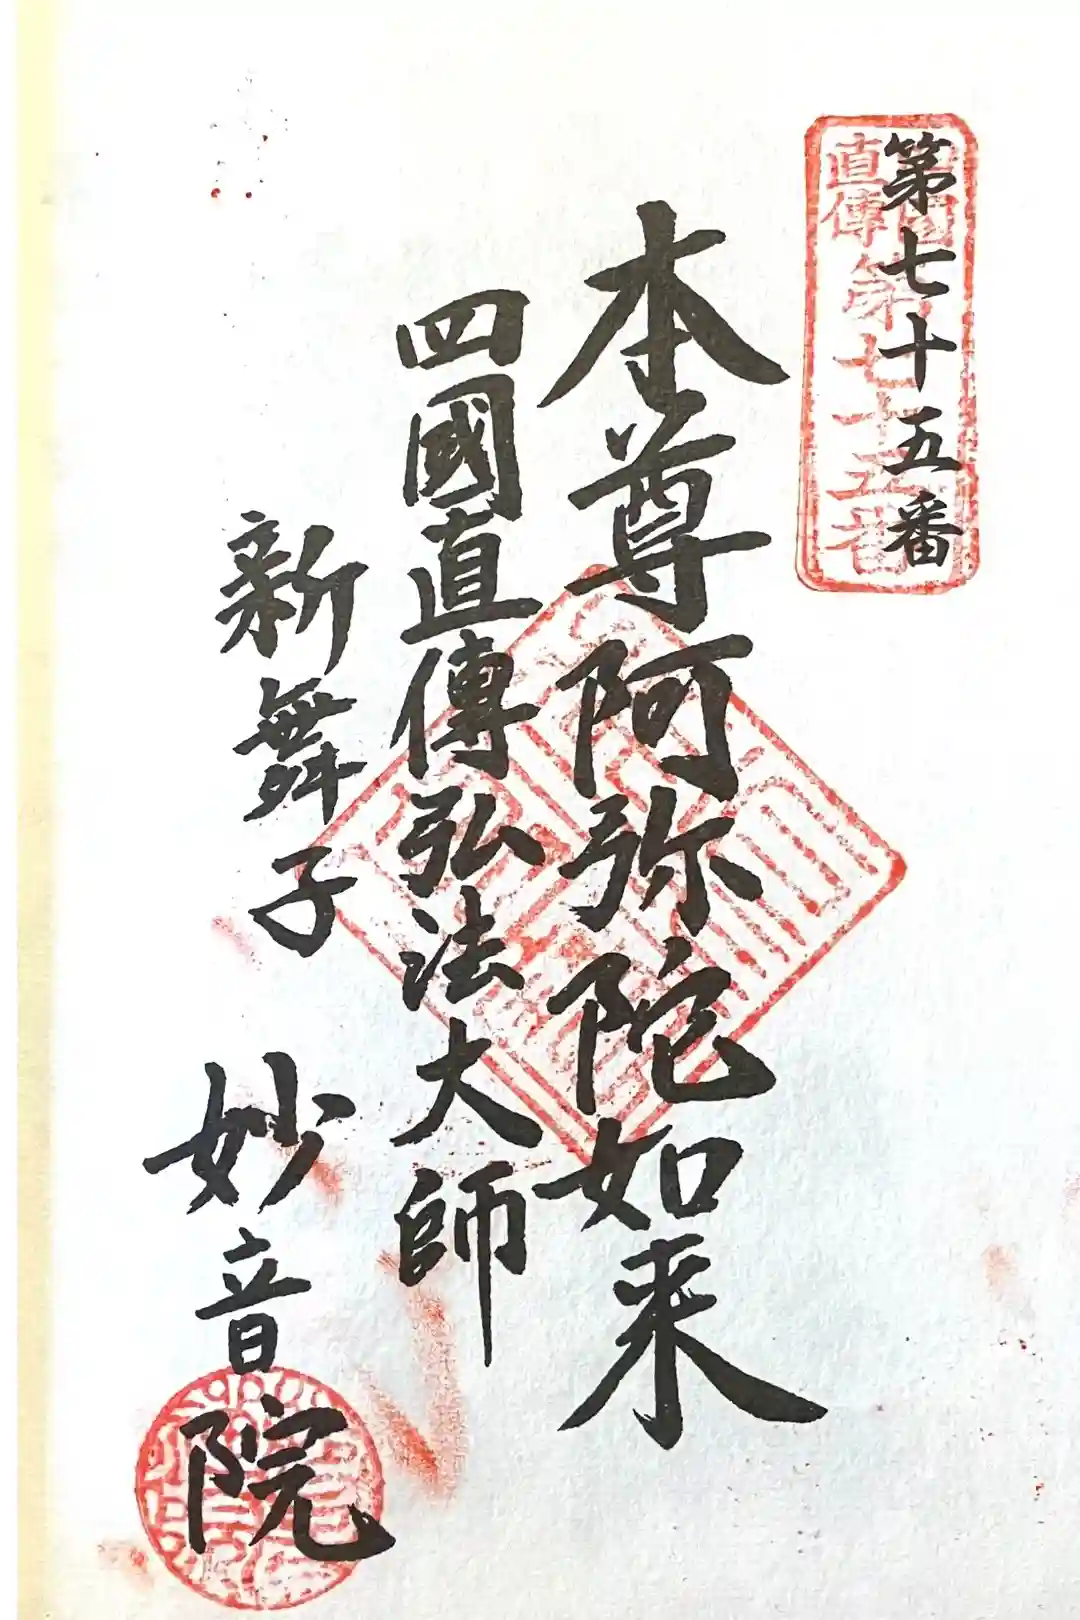 第七十五番
四國
直傳
第七十五番
本尊阿弥陀如来
四國直傳弘法大師
新舞子
妙音院